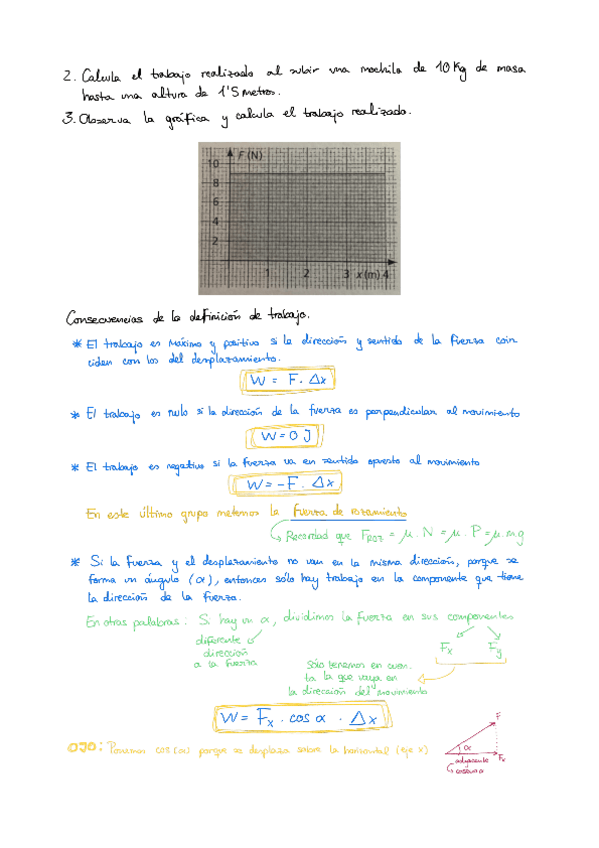 2. Calcula el trabajo realizado al subir una mochila de 10 Kg de masa
hasta una altura de 1'5 metros.
3. Observa la gráfica y calcula el trabajo realizado.
F (N)
10
8
6
4
2
1 2 3 x (m) 4
Consecuencias de la definición de trabajo.
* El trabajo es máximo y positivo si la dirección y sentido de la fuerza coin
ciden con los del desplazamiento.
W = F · Δx
* El trabajo es nulo si la dirección de la fuerza es perpendicular al movimiento
W = 0 J
* El trabajo es negativo si la fuerza va en sentido opuesto al movimiento
W = -F · Δx
En este último grupo metemos la fuerza de rozamiento
Recordad que FROZ = μ · N = μ · P = μ · m g
* Si la fuerza y el desplazamiento no van en la misma dirección, porque se
forma un ángulo (α), entonces sólo hay trabajo en la componente que tiene
la dirección de la fuerza.
En otras palabras: Si hay un α, dividimos la fuerza en sus componentes
diferente
dirección
a la fuerza
Fx Fy
Sólo tenemos en cuen.
ta la que vaya en
la dirección del movimiento
W = Fx · cos α · Δx
OJO: Ponemos cos(α) porque se desplaza sobre la horizontal (eje x)
F
α
Fx
adyacente
coseno α